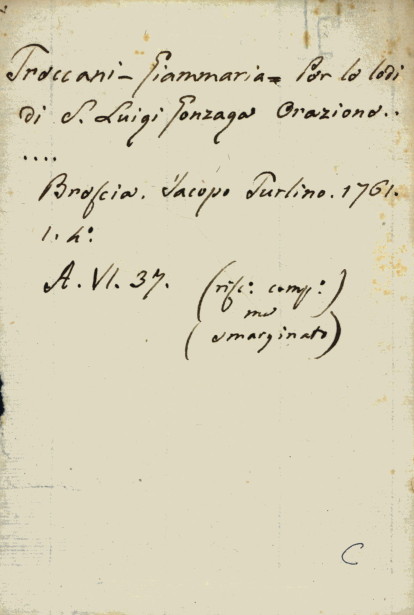 Troccani - Giammaria = Per le lodi
di S. Luigi Gonzaga Orazione..
....
Brescia. Iacopo Turlino. 1761.
1. 4°.
A. VI. 37. (risc.° comp.°)
ma
(smarginato)
C